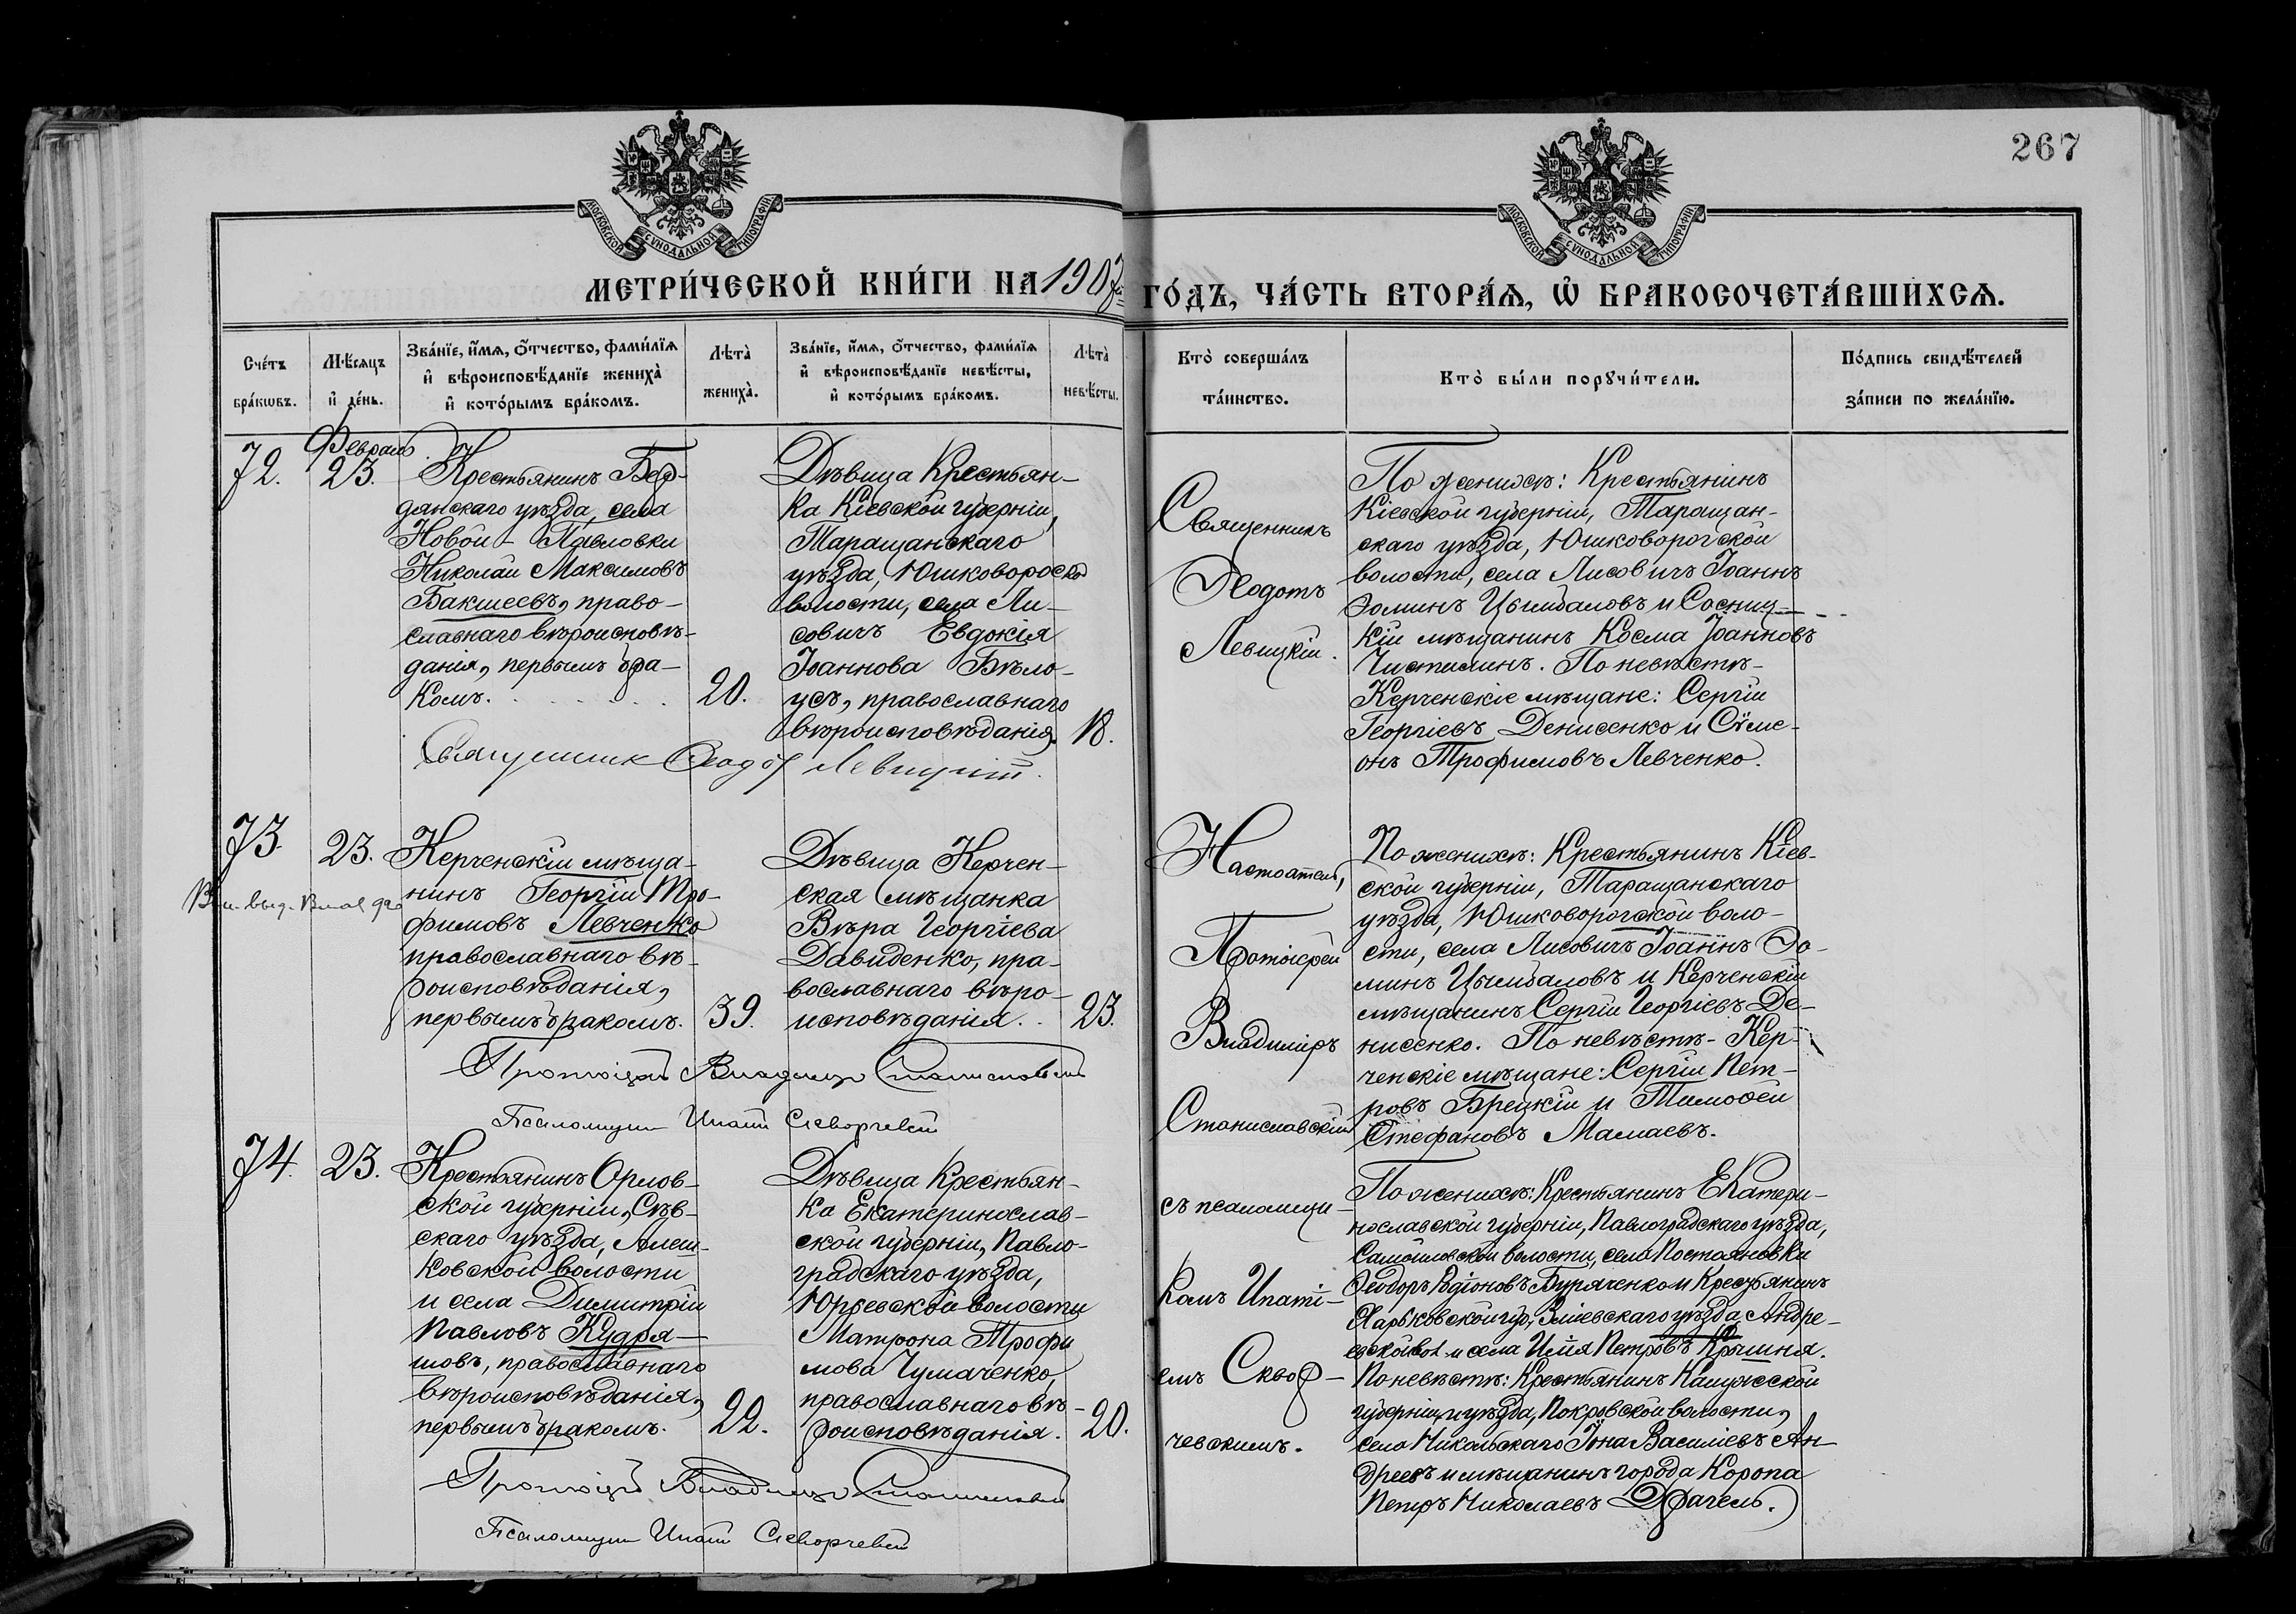 267
МОСКОВСКОЙ СѴНОДАЛЬНОЙ ТИПОГРАФІИ
МОСКОВСКОЙ СѴНОДАЛЬНОЙ ТИПОГРАФІИ
МЕТРИ́ЧЕСКОЙ КНИ́ГИ НА 1907 ГО́ДЪ, ЧА́СТЬ ВТОРА́Ѧ, Ѡ҆ БРАКОСОЧЕТА́ВШИХСѦ.
Сче́тъ
бра́кѡвъ.
Мѣ́сяцъ
и҆ де́нь.
Зва́нїе, и҆́мѧ, ѻ҆́тчество, фами́лїѧ
и҆ вѣроисповѣ́данїе жениха̀
и҆ кото́рымъ бра́комъ.
Лѣта̀
жениха̀.
Зва́нїе, и҆́мѧ, ѻ҆́тчество, фами́лїѧ
и҆ вѣроисповѣ́данїе невѣ́сты,
и҆ кото́рымъ бра́комъ.
Лѣта̀
невѣ́сты.
Кто̀ соверша́лъ
та́инство.
Кто̀ бы́ли порꙋчи́тели.
По́дпись свидѣ́телей
за́писи по жела́нїю.
72.
Февраль
23.
Крестьянинъ Бер-
дянскаго уѣзда, села
Новой-Павловки
Николай Максимовъ
Бакшеевъ, право-
славнаго вѣроисповѣ-
данія, первымъ бра-
комъ.
20.
Дѣвица Крестьян-
ка Кіевской губерніи,
Таращанскаго
уѣзда, Юшковорогской
волости, села Ли-
совичъ Евдокія
Іоаннова Бѣло-
усъ, православнаго
вѣроисповѣданія.
18.
Священникъ
Ѳеодотъ
Левицкій.
По женихѣ: Крестьянинъ
Кіевской губерніи, Таращан-
скаго уѣзда, Юшковорогской
волости, села Лисовичъ Іоаннъ
Ѳоминъ Цымбаловъ и Сосниц-
кій мѣщанинъ Косма Іоанновъ
Чистилинъ. По невѣстѣ-
Керченскіе мѣщане: Сергій
Георгіевъ Денисенко и Сѵме-
онъ Трофимовъ Левченко.
Священник Ѳеодотъ Левицкій.
73.
23.
Керченскій мѣща-
нинъ Георгій Тро-
фимовъ Левченко
православнаго вѣ-
роисповѣданія,
первымъ бракомъ.
39.
Дѣвица Керчен-
ская мѣщанка
Вѣра Георгіева
Давиденко, пра-
вославнаго вѣро-
исповѣданія.
23.
Настоятель,
Протоіерей
Владиміръ
Станиславскій
По женихѣ: Крестьянинъ Кіев-
ской губерніи, Таращанскаго
уѣзда, Юшковорогской воло-
сти, села Лисовичъ Іоаннъ Ѳо-
минъ Цымбаловъ и Керченскій
мѣщанинъ Сергій Георгіевъ Де-
нисенко. По невѣстѣ- Кер-
ченскіе мѣщане: Сергій Пет-
ровъ Брецкій и Тимоѳей
Стефановъ Мамаевъ.
Протоіерей Владиміръ Станиславскій
Псаломщик Ипатій Скворчевскій
74.
23.
Крестьянинъ Орлов-
ской губерніи, Сѣв-
скаго уѣзда, Алеш-
ковской волости
и села Димитрій
Павловъ Кудря-
шовъ, православнаго
вѣроисповѣданія,
первымъ бракомъ.
22.
Дѣвица Крестьян-
ка Екатеринослав-
ской губерніи, Павло-
градскаго уѣзда,
Юрьевской волости
Матрона Трофи
мова Чумаченко,
православнаго вѣ-
роисповѣданія.
20.
съ псаломщи-
комъ Ипаті-
емъ Сквор-
чевскимъ.
По женихѣ: Крестьянинъ Екатери-
нославской губерніи, Павлоградскаго уѣзда,
Самойловской волости, села Постояновки
Ѳеодоръ Родіоновъ Буряченко и Крестьянинъ
Харьковской губ, Зміевскаго уѣзда, Андре-
евской вол. и села Илія Петровъ
По невѣстѣ: Крестьянинъ Калужской
губерніи и уѣзда, Покровской волости,
села Никольскаго Іона Василіевъ Ан-
дреевъ и мѣщанинъ города Коропа
Петръ Николаевъ Драгель.
Протоіерей Владиміръ Станиславскій
Псаломщик Ипатій Скворчевскій